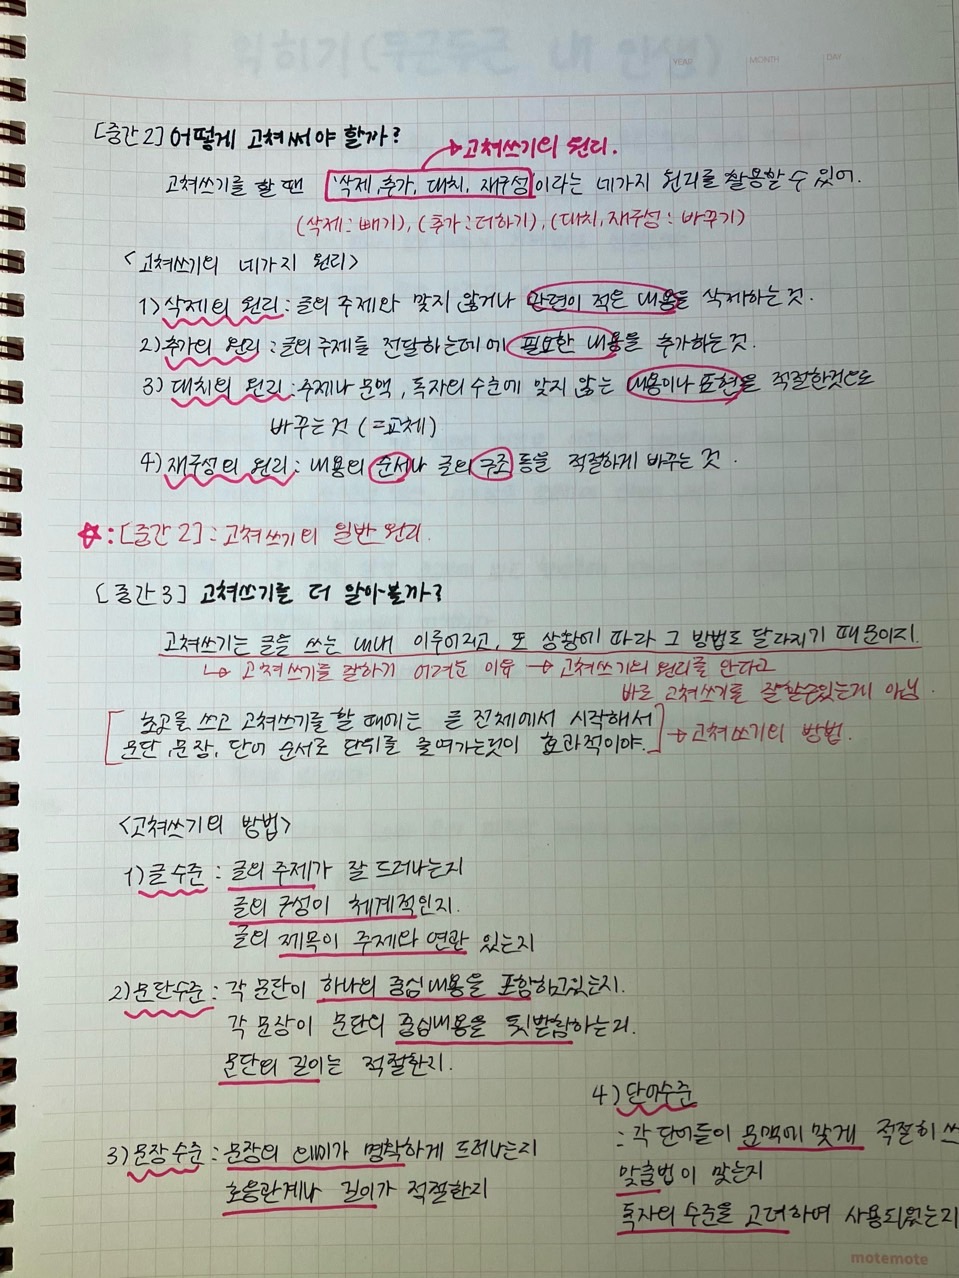 YEAR MONTH DAY
[중간2] 어떻게 고쳐써야 할까?
→고쳐쓰기의 원리.
고쳐쓰기를 할 땐 '삭제, 추가, 대치, 재구성'이라는 네가지 원리를 활용할 수 있어.
(삭제:빼기), (추가:더하기), (대치, 재구성:바꾸기)
<고쳐쓰기의 네가지 원리>
1) 삭제의 원리: 글의 주제와 맞지 않거나 관련이 적은 내용을 삭제하는 것.
2) 추가의 원리: 글의 주제를 전달하는데에 필요한 내용을 추가하는 것.
3) 대치의 원리: 주제나 문맥, 독자의 수준에 맞지 않는 내용이나 표현을 적절한것으로
바꾸는 것 (=교체)
4) 재구성의 원리: 내용의 순서나 글의 구조 등을 적절하게 바꾸는 것.
☆:[중간2]: 고쳐쓰기의 일반 원리.
[중간3] 고쳐쓰기를 더 알아볼까?
고쳐쓰기는 글을 쓰는 내내 이루어지고, 또 상황에 따라 그 방법도 달라지기 때문이지.
↳ 고쳐쓰기를 잘하기 어려운 이유 → 고쳐쓰기의 원리를 안다고
바로 고쳐쓰기를 잘할수있는게 아님.
[초고를 쓰고 고쳐쓰기를 할 때에는 글 전체에서 시작해서
문단, 문장, 단어 순서로 단위를 줄여가는것이 효과적이야.] →고쳐쓰기의 방법.
<고쳐쓰기의 방법>
1) 글 수준: 글의 주제가 잘 드러나는지
글의 구성이 체계적인지.
글의 제목이 주제와 연관 있는지
2) 문단수준: 각 문단이 하나의 중심내용을 포함하고있는지.
각 문장이 문단의 중심내용을 뒷받침하는지.
문단의 길이는 적절한지.
3) 문장수준: 문장의 의미가 명확하게 드러나는지
호응관계나 길이가 적절한지
4) 단어수준
: 각 단어들이 문맥에 맞게 적절히 쓰
맞춤법이 맞는지
독자의 수준을 고려하여 사용되었는지
motemote